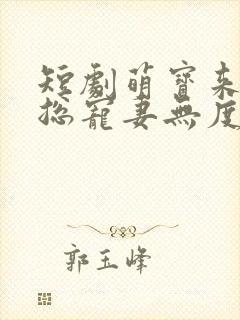 短劇萌寶來
總寵妻無度
郭玉峰